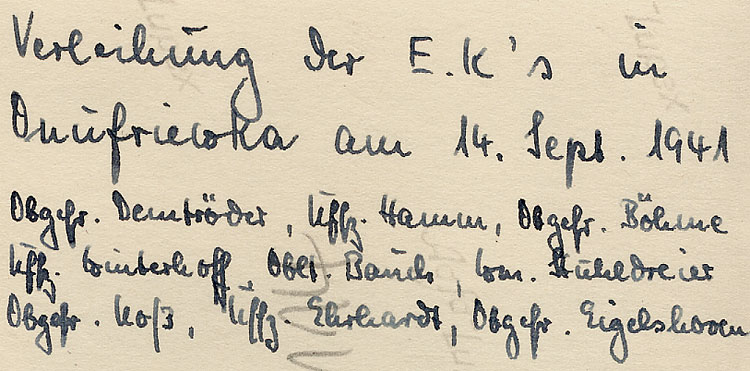 Verleihung der E.K's in
Onufriewka am 14. Sept. 1941
Obgefr. Demtröder, Uffz. Hamm, Obgefr. Böhme
Uffz. Winterhoff Oblt. Bauch, Wm. Kuhldreier
Obgefr. Koß, Uffz. Ehrhardt, Obgefr. Eigelshoven